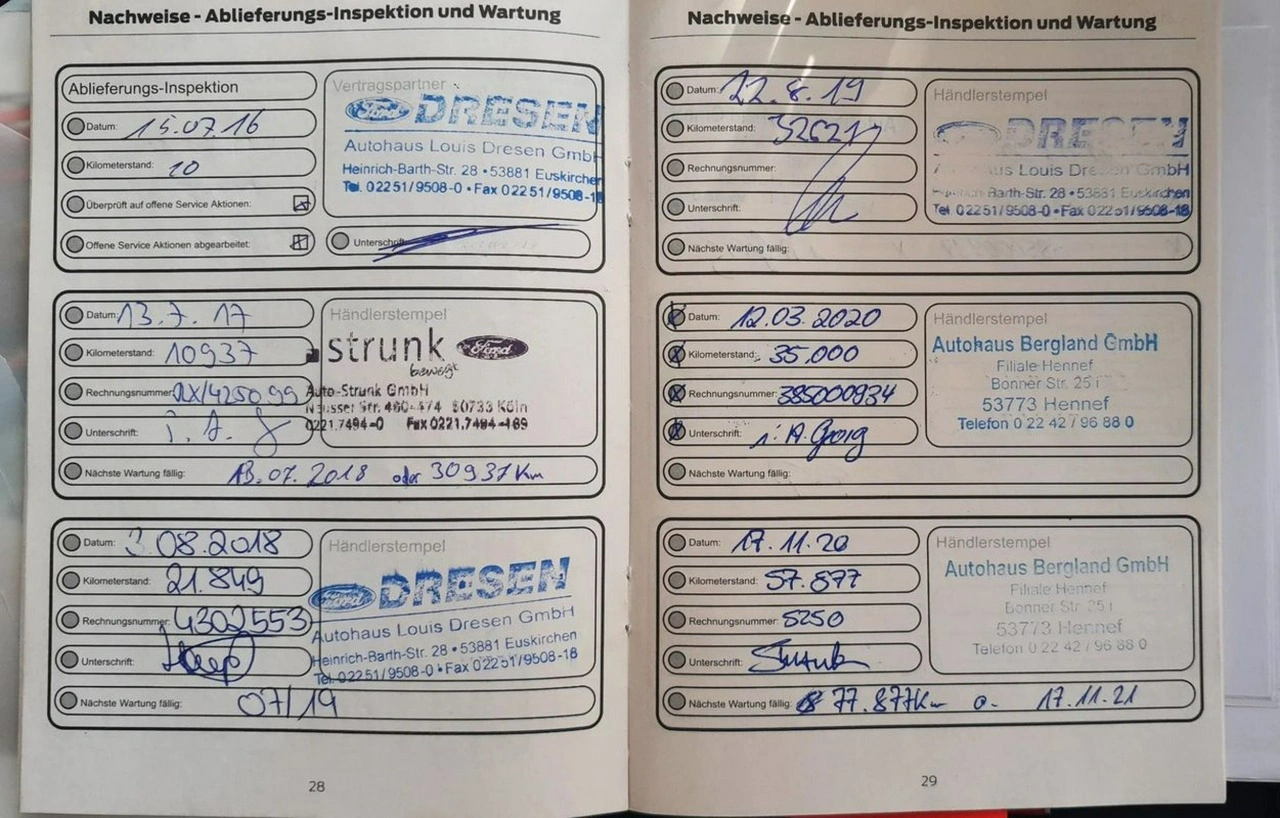 Nachweise - Ablieferungs-Inspektion und Wartung
Ablieferungs-Inspektion
Datum: 15.07.16
Kilometerstand: 10
Überprüft auf offene Service Aktionen:
Offene Service Aktionen abgearbeitet:
Vertragspartner
Ford DRESEN
Autohaus Louis Dresen GmbH
Heinrich-Barth-Str. 28 • 53881 Euskirchen
Tel. 02251/9508-0 • Fax 02251/9508-18
Unterschrift
Datum: 13.7.17
Kilometerstand: 10937
Rechnungsnummer: RX/425099
Unterschrift: i.A.
Händlerstempel
strunk Ford
bewegt
Auto-Strunk GmbH
Neusser Str. 460-474 50733 Köln
0221.7494-0 Fax 0221.7494-169
Nächste Wartung fällig: 13.07.2018 oder 30937 Km
Datum: 3.08.2018
Kilometerstand: 21.849
Rechnungsnummer: 4302553
Unterschrift:
Händlerstempel
Ford DRESEN
Autohaus Louis Dresen GmbH
Heinrich-Barth-Str. 28 • 53881 Euskirchen
Tel. 02251/9508-0 • Fax 02251/9508-18
Nächste Wartung fällig: 07/19
28
Nachweise - Ablieferungs-Inspektion und Wartung
Datum: 22.8.19
Kilometerstand: 32621
Rechnungsnummer:
Unterschrift:
Händlerstempel
DRESEN
Autohaus Louis Dresen GmbH
Heinrich-Barth-Str. 28 • 53881 Euskirchen
Tel. 02251/9508-0 • Fax 02251/9508-18
Nächste Wartung fällig:
Datum: 12.03.2020
Kilometerstand: 35.000
Rechnungsnummer: 385000934
Unterschrift: i.A. Georg
Händlerstempel
Autohaus Bergland GmbH
Filiale Hennef
Bonner Str. 25 i
53773 Hennef
Telefon 0 22 42 / 96 88 0
Nächste Wartung fällig:
Datum: 17.11.20
Kilometerstand: 57.877
Rechnungsnummer: 5250
Unterschrift:
Händlerstempel
Autohaus Bergland GmbH
Filiale Hennef
Bonner Str. 25 i
53773 Hennef
Telefon 0 22 42 / 96 88 0
Nächste Wartung fällig: 77.877Km o. 17.11.21
29